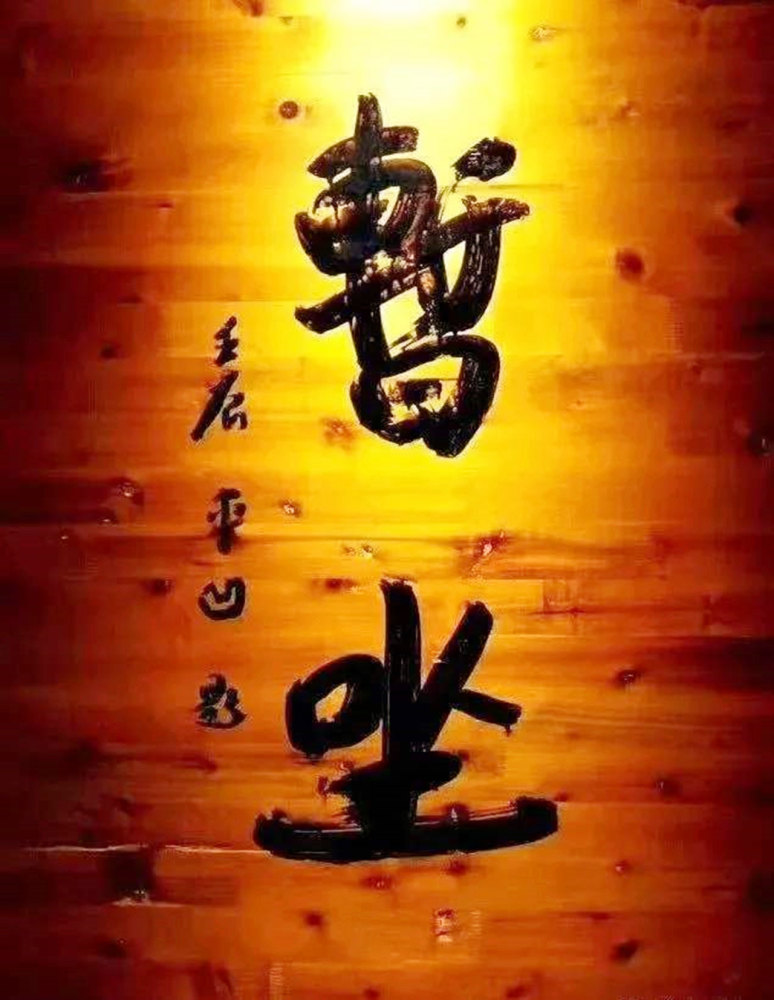 暫坐
壬辰 平凹 题